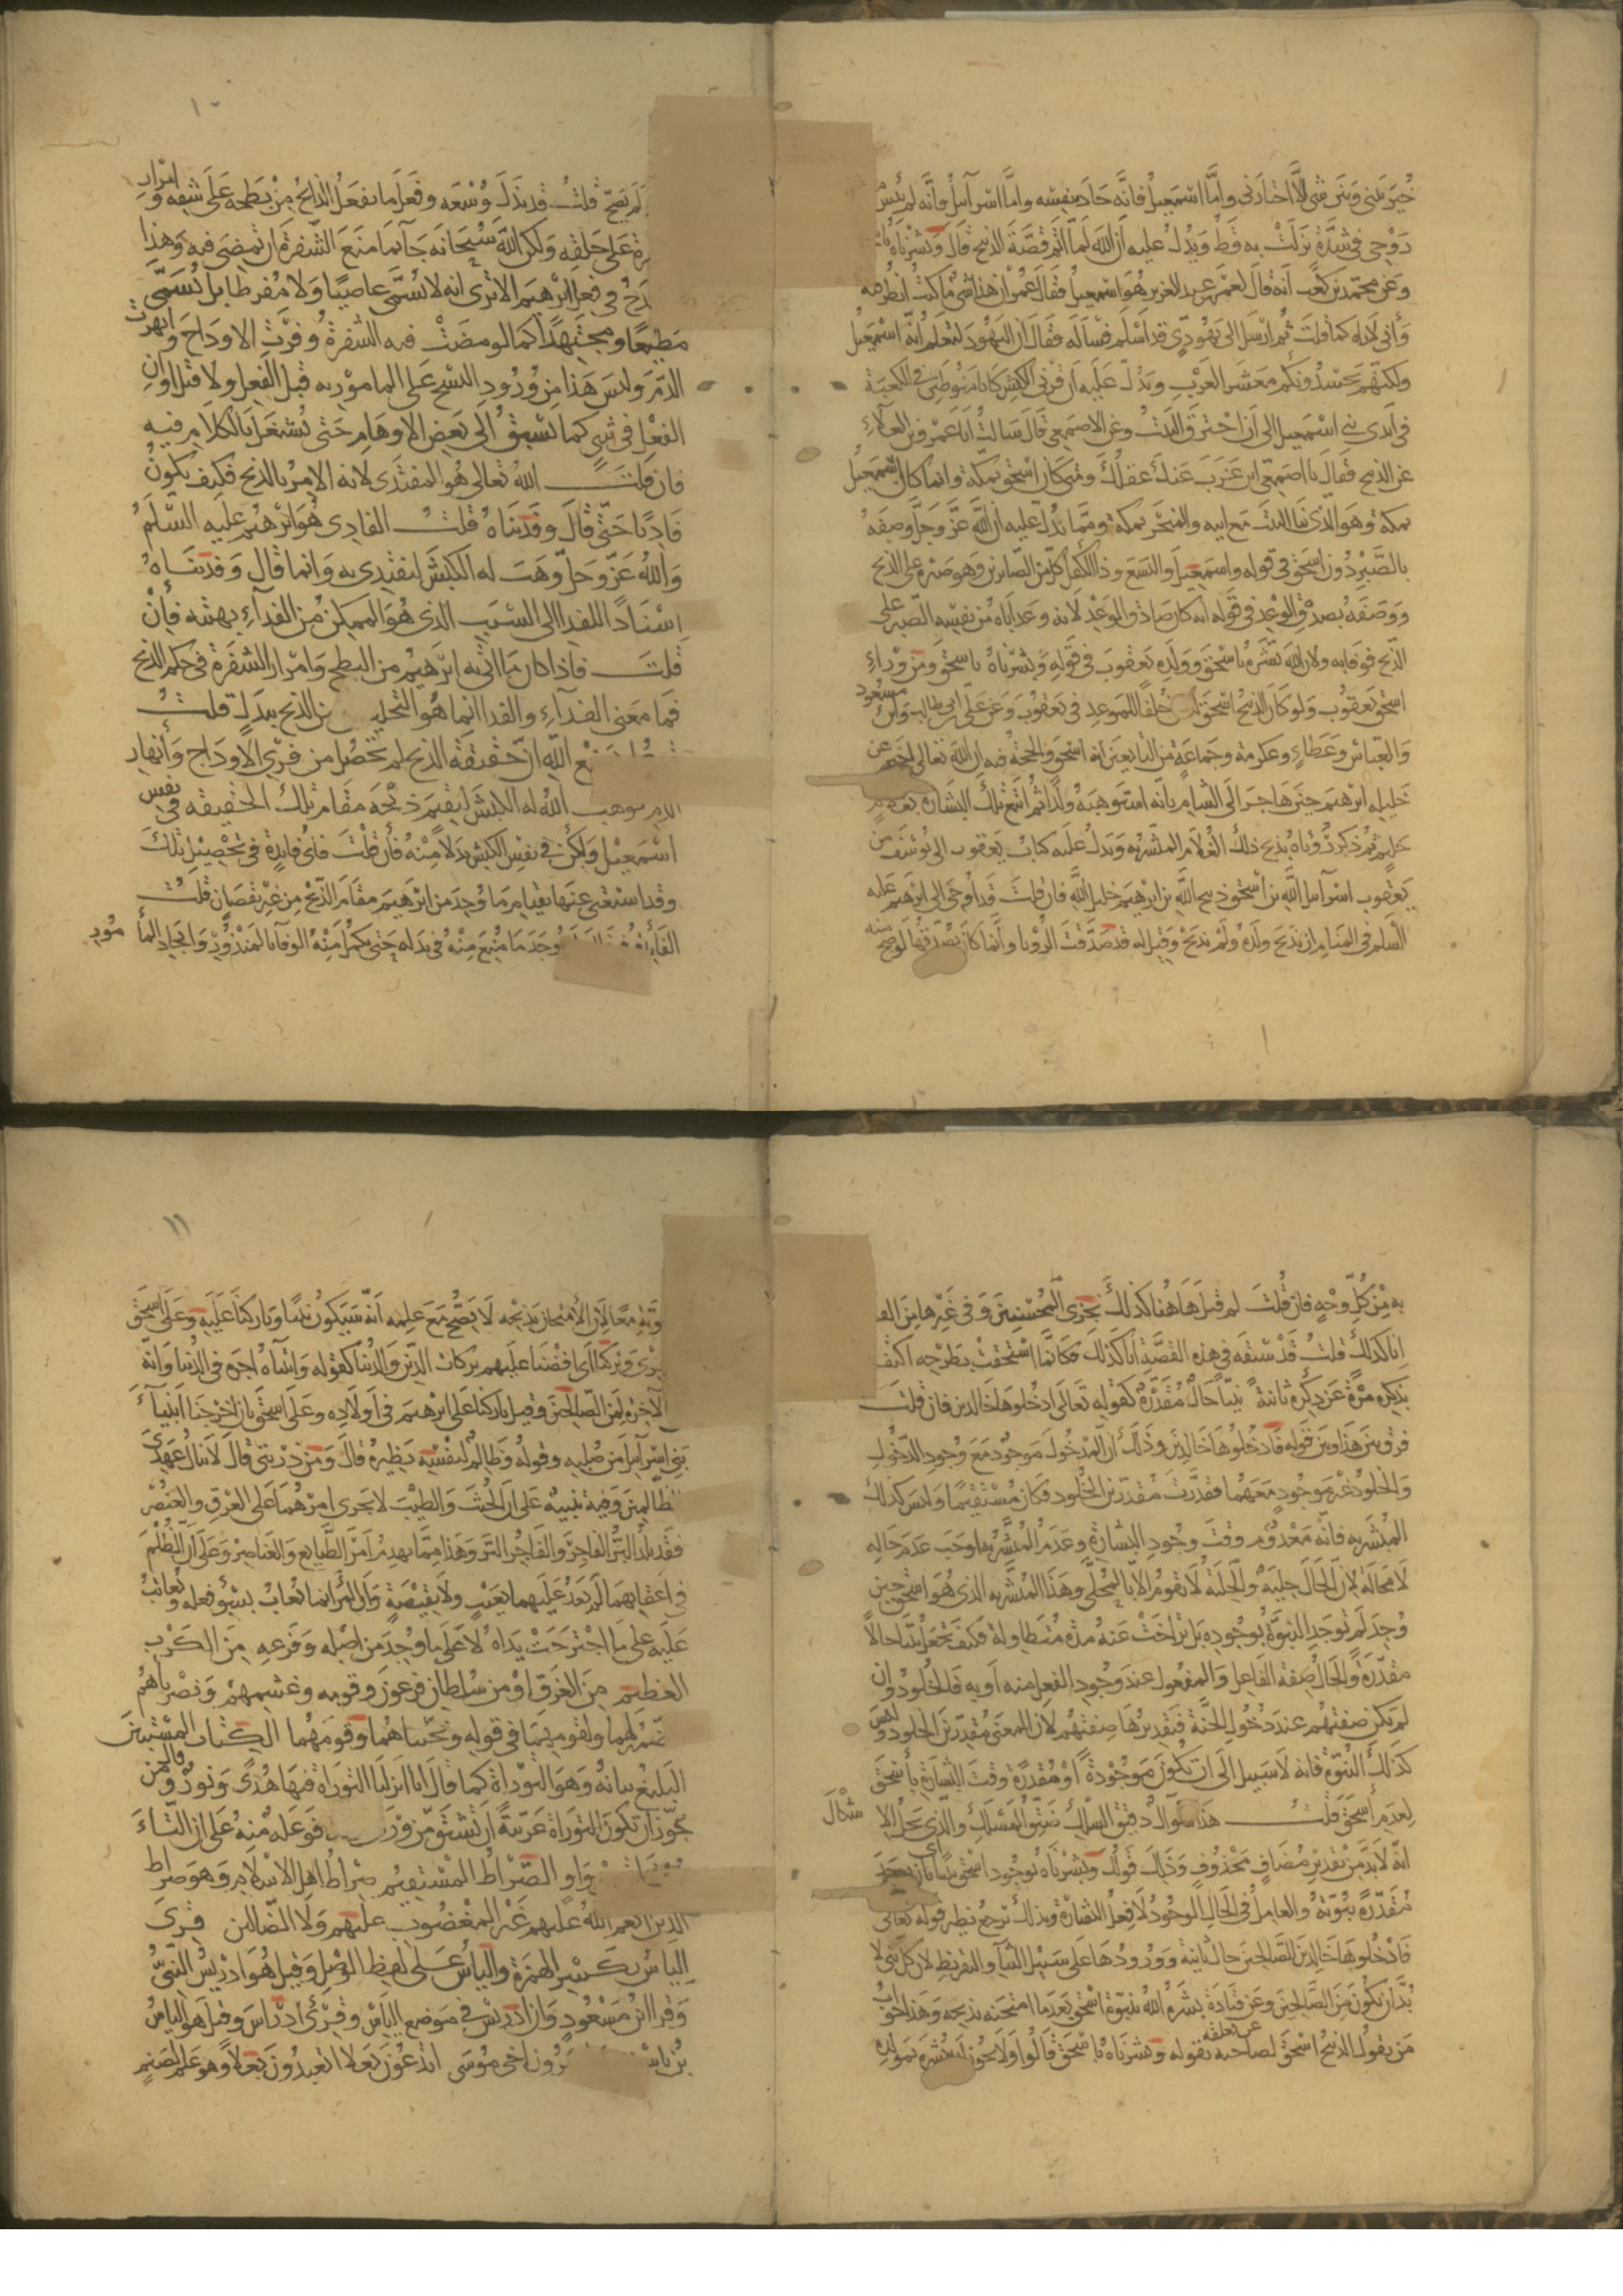 خير بيني وبين شي الا اختارني واما اسمعيل فانه جاد بنفسه واما اسرآئيل فانه لم ييئس من
روحي في شدة نزلت به قط ويدل عليه ان الله لما اتم قصة الذبيح قال وبشرناه
وعن محمد بن كعب انه قال لعمر بن عبد العزيز هو اسمعيل فقال عمر ان هذا شي ما كنت انظر فيه
واني لاراه كما قلت ثم ارسل الى يهودي قد اسلم فسأله فقال ان اليهود لتعلم انه اسمعيل
ولكنهم يحسدونكم معشر العرب ويدل عليه ان قرني الكبش كانا منوطين في الكعبة
في ايدي بني اسمعيل الى ان احترق البيت وعن الاصمعي قال سالت ابا عمرو بن العلاء
عن الذبيح فقال يا اصمعي اين عزب عنك عقلك ومتى كان اسحق بمكة وانما كان اسمعيل
بمكة وهو الذي بنا البيت مع ابيه والمنحر بمكة ومما يدل عليه ان الله عز وجل وصفه
بالصبر دون اسحق في قوله واسمعيل واليسع وذا الكفل كل من الصابرين وهو صبره على الذبح
ووصفه بصدق الوعد في قوله انه كان صادق الوعد لانه وعد اباه من نفسه الصبر على
الذبح فوفا به ولان الله بشره باسحق وولده يعقوب في قوله وبشرناه باسحق ومن ورآء
اسحق يعقوب ولو كان الذبيح اسحق خلفا للموعد في يعقوب وعن علي بن ابي طالب وابن مسعود
والعباس وعطاء وعكرمة وجماعة من التابعين انه اسحق والحجة فيه ان الله تعالى اخبر عن
خليله ابرهيم حين هاجر الى الشام بانه استوهبه ولدا ثم اتبع تلك البشارة بغلام
حليم ثم ذكر رؤياه بذبح ذلك الغلام المبشر به ويدل عليه كتاب يعقوب الى يوسف من
يعقوب اسرآئيل الله بن اسحق ذبيح الله بن ابرهيم خليل الله فان قلت قد اوحي الى ابرهيم عليه
السلم في المنام ان يذبح ولده ولم يذبح وقيل له قد صدقت الرؤيا وانما كان يصدقها لو صح منه
١٠
لم يصح قلت قد بذل وسعه وفعل ما يفعل الذابح من بطحه على شقه وامرار
على حلقه ولكن الله سبحانه جآ بما منع الشفرة ان تمضي فيه وهذا
في فعل ابرهيم الا ترى انه لا يسمى عاصيا ولا مفرطا بل يسمى
مطيعا ومجتهدا كما لو مضت فيه الشفرة وفرت الاوداج وانهرت
الدم وليس هذا من ورود النسخ على المامور به قبل الفعل ولا قبل اوان
الفعل في شي كما يسبق الى بعض الاوهام حتى يشتغل بالكلام فيه
فان قلت الله تعالى هو المفتدى لانه الامر بالذبح فكيف يكون
فاديا حتى قال وفديناه قلت الفادي هو ابرهيم عليه السلم
والله عز وجل وهب له الكبش ليفتدي به وانما قال وفديناه
اسنادا للفدا الى السبب الذي هو الممكن من الفدآء بهبته فان
قلت فاذا كان ما اتى به ابرهيم من البطح وامرار الشفرة في حكم الذبح
فما معنى الفدآء والفدا انما هو التخليص من الذبح ببدل قلت
الله ان حقيقة الذبح لم تحصل من فري الاوداج وانهار
الدم فوهب الله له الكبش ليقيم ذبحه مقام تلك الحقيقة في نفس
اسمعيل ولكن في نفس الكبش بدلا منه فان قلت فاي فايدة في تحصيل تلك
وقد استغنى عنها بقيام ما وجد من ابرهيم مقام الذبح من غير نقصان قلت
الفائدة وجد ما منع منه في بدله حتى يكمل منه الوفآ بالمنذور وايجاد المأمور
به من كل وجه فان قلت لم قيل هاهنا كذلك نجزي المحسنين وفي غيرها من القصص
انا كذلك قلت قد سبقه في هذه القصة انا كذلك فكانما استخف بطرحه اكتفاء
بذكره مرة عن ذكره ثانية نبيا حال مقدرة كقوله تعالى ادخلوها خالدين فان قلت
فرق بين هذا وبين قوله فادخلوها خالدين وذلك ان المدخول موجود مع وجود الدخول
والخلود غير موجود معهما فقدرت مقدرين الخلود فكان مستقيما وليس كذلك
المبشر به فانه معدوم وقت وجود البشارة وعدم المبشر به اوجب عدم حاله
لا محالة لان الحال حلية والحلية لا تقوم الا بالمحلى وهذا المبشر به الذي هو اسحق حين
وجد لم توجد النبوة بوجوده بل تراخت عنه مدة متطاولة فكيف تجعل نبيا حالا
مقدرة والحال صفة الفاعل والمفعول عند وجود الفعل منه او به فالخلود وان
لم يكن صفتهم عند دخول الجنة فتقديرها صفتهم لان المعنى مقدرين الخلود وليس
كذلك النبوة فانه لا سبيل الى ان تكون موجودة او مقدرة وقت البشارة باسحق
لعدم اسحق قلت هذا سوال دقيق السلك ضيق المسلك والذي يحل الاشكال
انه لا بد من تقدير مضاف محذوف وذلك قولك وبشرناه بوجود اسحق نبيا اي بان يوجد
مقدرة نبوته والعامل في الحال الوجود لا فعل البشارة وبذلك يرجع نظير قوله تعالى
فادخلوها خالدين من الصالحين حال ثانية وورودها على سبيل الثنآ والتقريظ لان كل نبي لا
بد ان يكون من الصالحين وعن قتادة بشره الله بنبوة اسحق بعد ما امتحنه بذبحه وهذا جواب
من يقول الذبيح اسحق لصاحبه عن تعلقه بقوله وبشرناه باسحق قالوا ولا يجوز ان يبشره بمولده
١١
ونبوته معا لان الامتحان بذبحه لا يصح مع علمه انه سيكون نبيا وباركنا عليه وعلى اسحق
وبركنا اي افضنا عليهم بركات الدين والدنيا كقوله واتيناه اجره في الدنيا وانه
الآخرة لمن الصالحين وقيل باركنا على ابرهيم في اولاده وعلى اسحق بان اخرجنا انبيآء
بني اسرآئيل من صلبه وقوله وظالم لنفسه نظيره قال ومن ذريتي قال لا ينال عهدي
الظالمين وفيه تنبيه على ان الخبث والطيب لا يجرى امرهما على العرق والعنصر
فقد يلد البر الفاجر والفاجر البر وهذا مما يهدم امر الطبايع والعناصر وعلى ان الظلم
في اعقابهما لم يعد عليهما بعيب ولا نقيصة وان المرء انما يعاب بسوء فعله ويعاتب
عليه على ما اجترحت يداه لا على ما وجد من اصله وفرعه من الكرب
العظيم من الغرق او من سلطان فرعون وقومه وغشمهم ونصرناهم
الضمير لهما ولقومهما في قوله ونجيناهما وقومهما الكتاب المستبين
البليغ بيانه وهو التوراة كما قال انا انزلنا التوراة فيها هدى ونور وقال من
جوز ان تكون التوراة عربية ان تشتق من وري فوعلة منه على ان التاء
واو الصراط المستقيم صراط اهل الاسلام وهو صراط
الذين انعم الله عليهم غير المغضوب عليهم ولا الضالين قرئ
الياس بكسر الهمزة والياس على لفظ الوصل وقيل هو ادريس النبي
وقرا ابن مسعود وان ادريس في موضع الياس وقرئ ادراس وقيل هو الياس
بن ياسين هرون اخي موسى اتدعون بعلا اتعبدون بعلا وهو علم لصنم